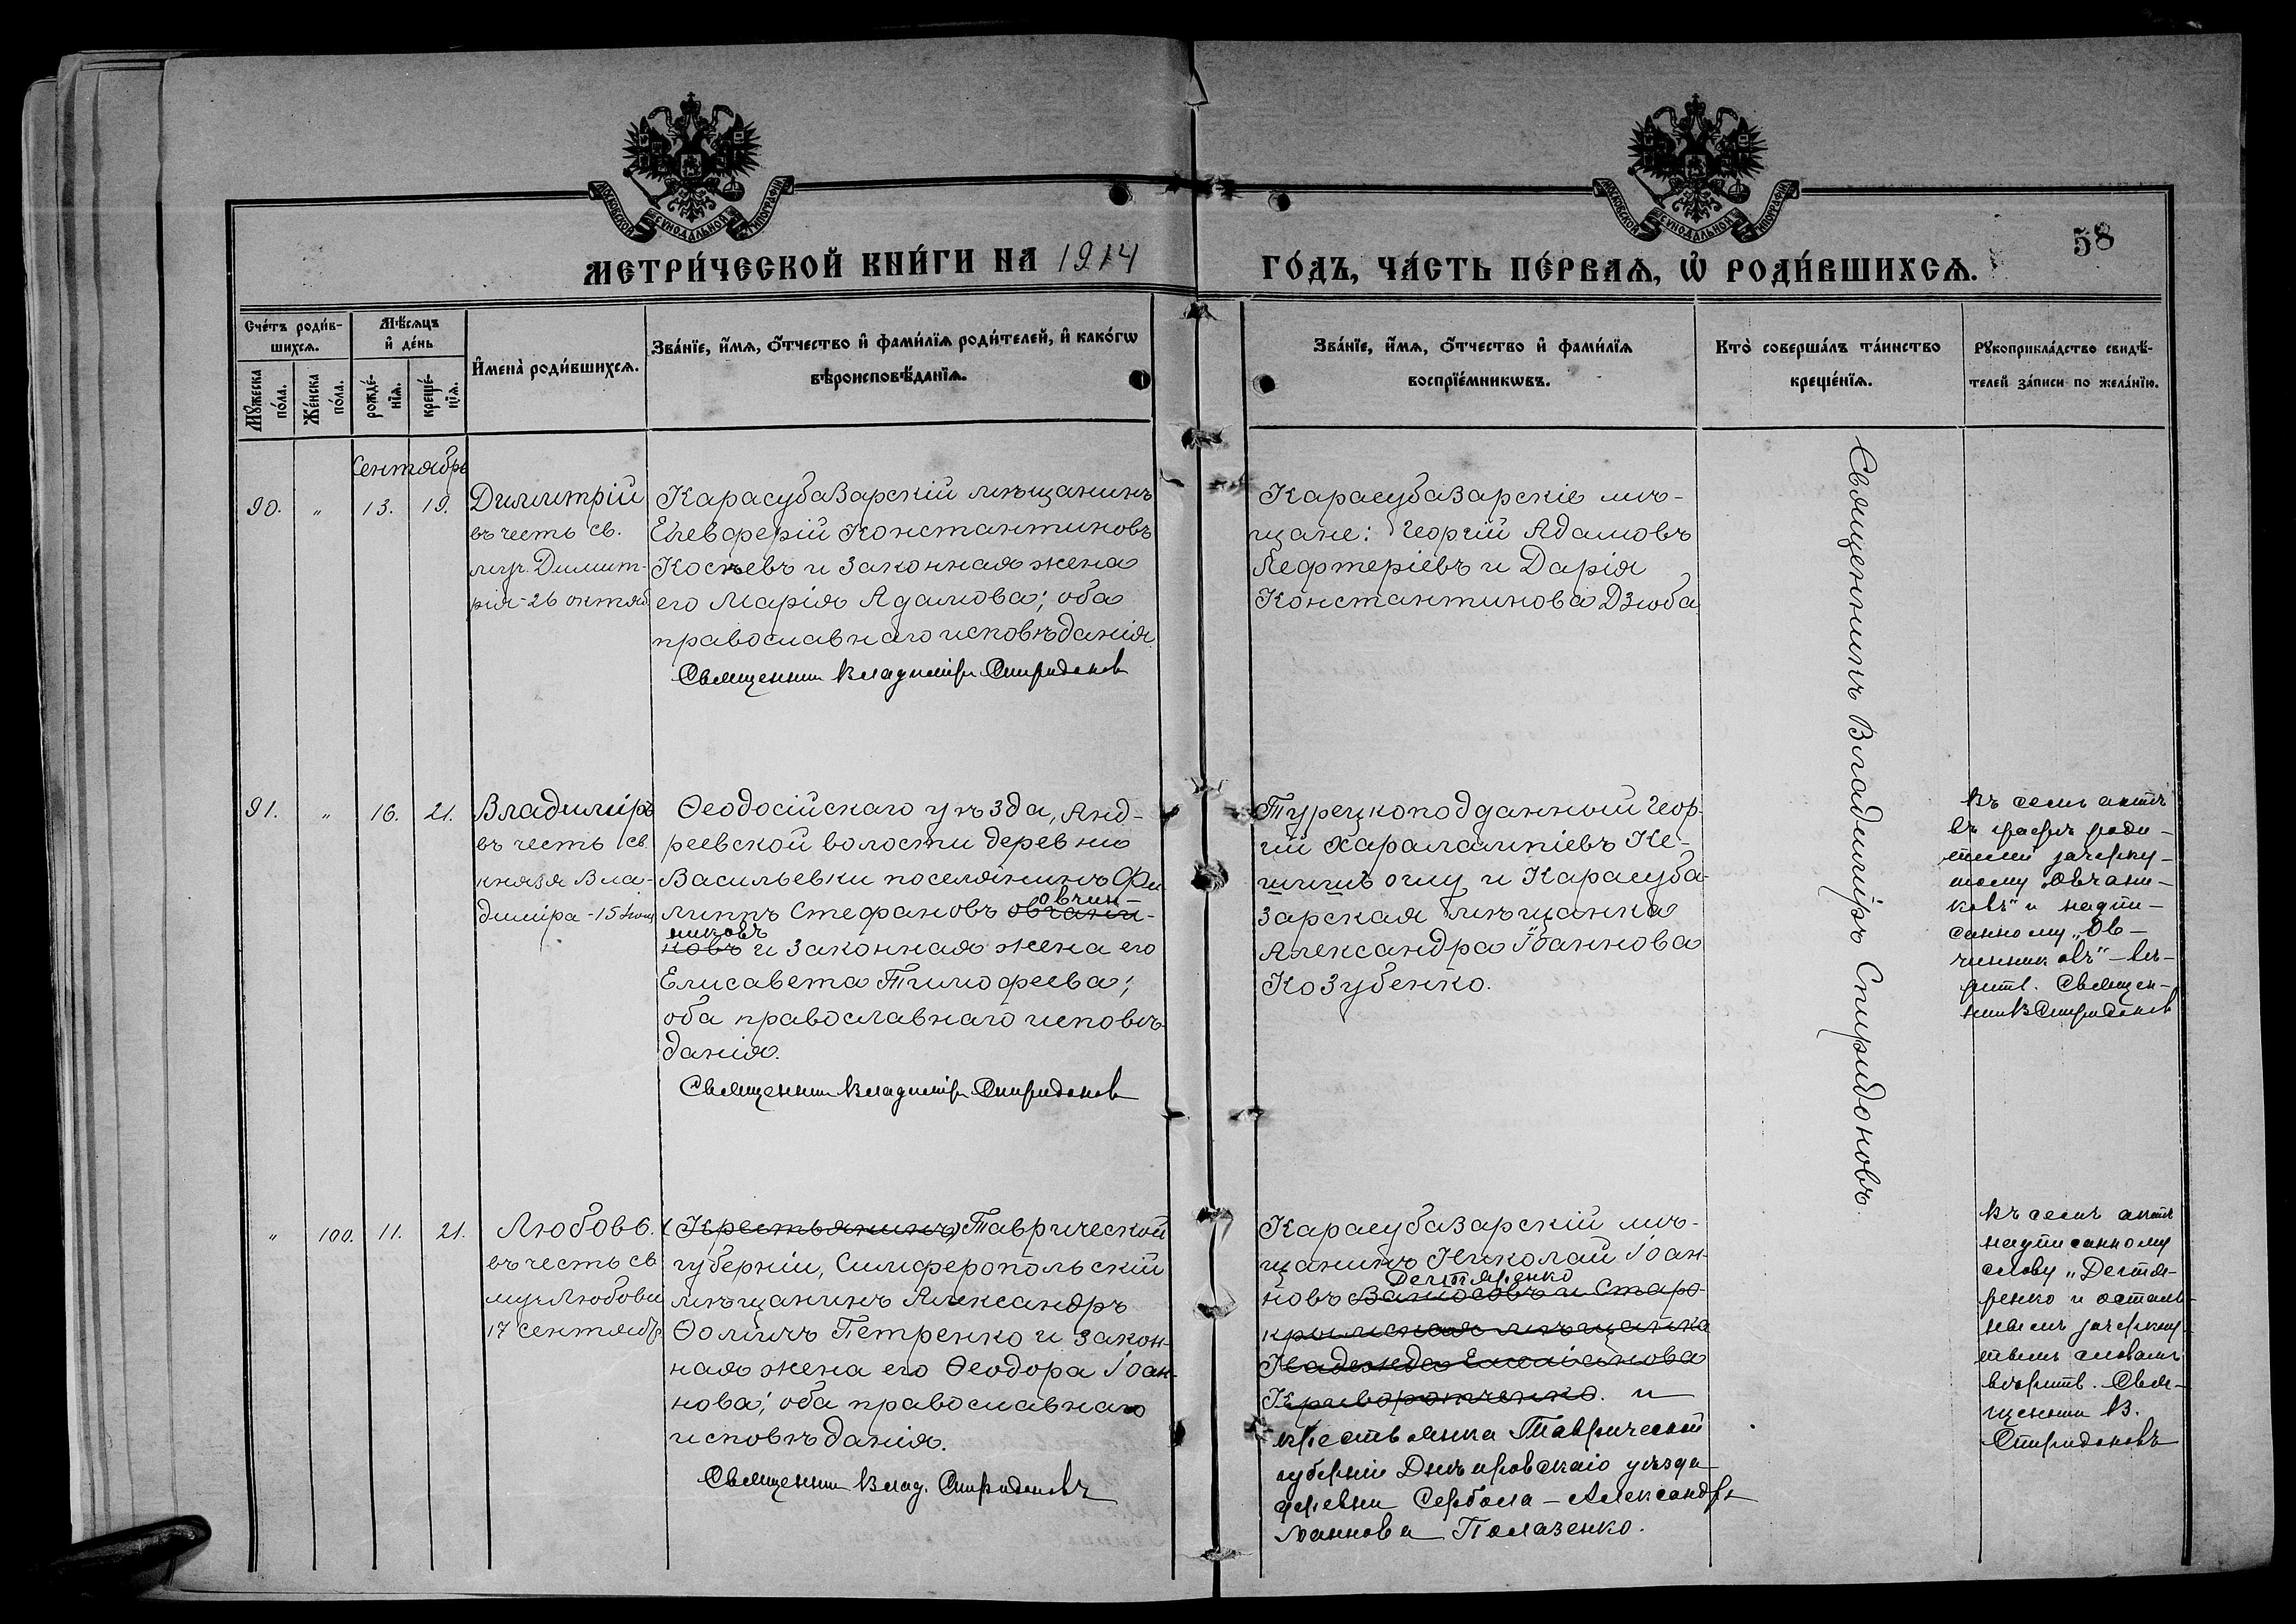 МОСКОВСКОЙ СУНОДАЛЬНОЙ ТИПОГРАФІИ
МОСКОВСКОЙ СУНОДАЛЬНОЙ ТИПОГРАФІИ
58
МЕТРИ́ЧЕСКОЙ КНИ́ГИ НА 1914
ГО́ДЪ, ЧА́СТЬ ПЕ́РВАѦ, Ѡ҆ РОДИ́ВШИХСѦ.
Сче́тъ роди́в-
шихсѧ.
Мꙋ́жеска по́ла.
Же́нска по́ла.
Мѣ́сѧцъ
и҆ де́нь
рожде́-
нїѧ.
креще́-
нїѧ.
И҆мена̀ роди́вшихсѧ.
Зва́нїе, и҆́мѧ, ѻ҆́тчество и҆ фами́лїѧ роди́телей, и҆ како́гѡ
вѣроисповѣ́данїѧ.
Зва́нїе, и҆́мѧ, ѻ҆́тчество и҆ фами́лїѧ
воспрїе́мникѡвъ.
Кто̀ соверша́лъ та́инство
креще́нїѧ.
Рꙋкоприкла́дство свидѣ́-
телей за́писи по жела́нїю.
Сентябрь
90. " 13. 19.
Димитрій
въ честь св.
муч. Димит-
рія - 26 октяб.
Карасубазарскій мѣщанинъ
Елевферій Константиновъ
Костевъ и законная жена
его Марія Адамова; оба
православнаго исповѣданія.
Священник Владимір Спиридонов
Карасубазарскіе мѣ-
щане: Георгій Адамовъ
Лефтеріевъ и Дарія
Константинова Дзюба
Священникъ Владиміръ Спиридоновъ.
91. " 16. 21.
Владиміръ
въ честь св.
князя Вла-
диміра - 15 Іюля
Ѳеодосійскаго уѣзда, Анд-
реевской волости деревни
Васильевки поселянинъ Фи-
овчин-
липпъ Стефановъ овчани-
никовъ
ковъ и законная жена его
Елисавета Тимофеева;
оба православнаго исповѣ-
данія.
Священник Владимір Спиридонов
Турецкоподданный Геор-
гій Харалампіевъ Ке-
шишъ оглу и Карасуба-
зарская мѣщанка
Александра Іоаннова
Козубенко.
Въ семъ актѣ
въ графѣ роди-
телей зачеркну-
тому „Овчани-
ковъ" и надпи-
санному „Ов-
чинниковъ" - вѣ-
рить. Священ-
ник В Спиридонов
" 100. 11. 21.
Любовь.
въ честь св
муч Любови
17 сентябр.
(Крестьянинъ) Таврической
губерніи, Симферопольскій
мѣщанинъ Александръ
Ѳоминъ Петренко и закон-
ная жена его Ѳеодора Іоан-
нова; оба православнаго
исповѣданія.
Священник Влад. Спиридоновъ
Карасубазарскій мѣ-
щанинъ Николай Іоан-
Дегтяренко
новъ и Старо-
крымская мѣщанка
Надежда
и
крестьянка Таврической
губерніи Днѣпровскаго уѣзда
деревни - Александра
Іоаннова Полазенко.
Въ семъ актѣ
надписанному
слову „Дегтя-
ренко и осталь-
нымъ зачеркну-
тымъ словамъ
вѣрить. Свя-
щенник В.
Спиридоновъ